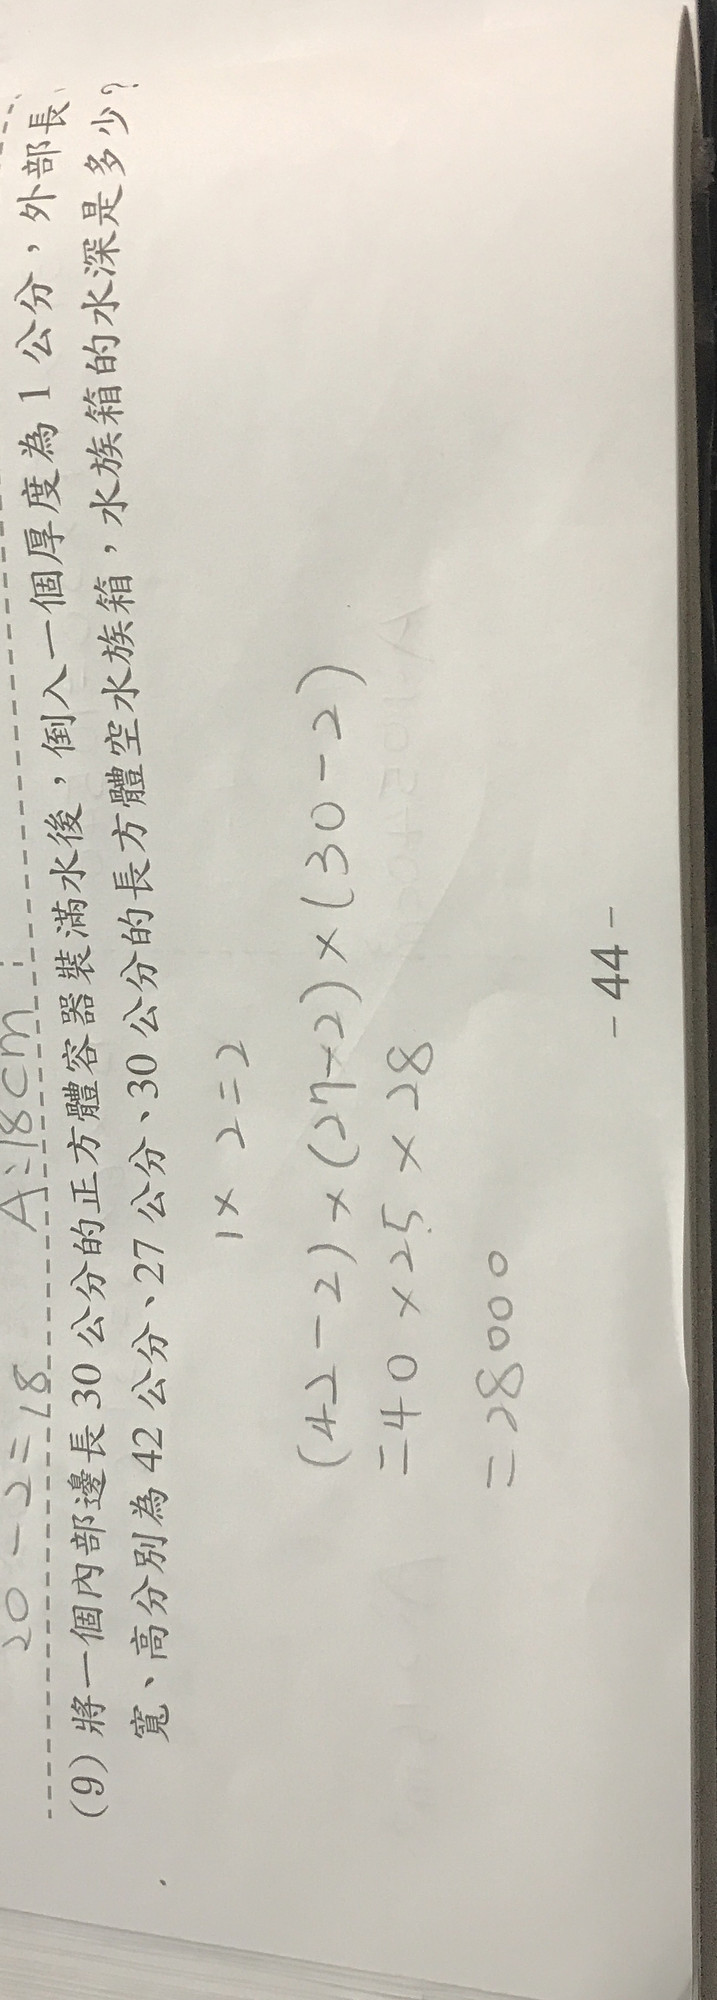 20－2＝18 A：18cm
(9) 將一個內部邊長 30 公分的正方體容器裝滿水後，倒入一個厚度為 1 公分，外部長、
寬、高分別為 42 公分、27 公分、30 公分的長方體空水族箱，水族箱的水深是多少？
1×2=2
(42-2)×(27-2)×(30-2)
=40×25×28
=28000
-44-